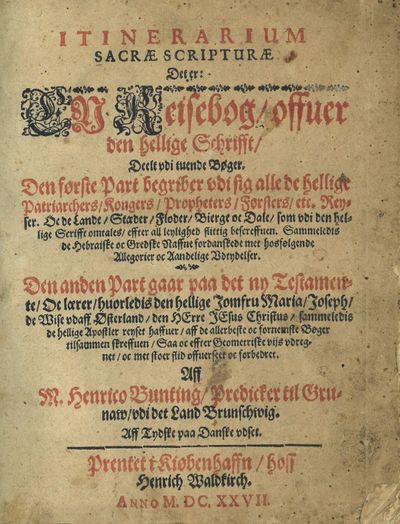 ITINERARIUM
SACRÆ SCRIPTURÆ
Det er:
EN Reisebog/ offuer
den hellige Schrifft/
Deelt vdi tuende Bøger.
Den første Part begriber vdi sig alle de hellige
Patriarchers/ Kongers/ Propheters/ Førsters/ etc. Rey-
ser. Oc de Lande/ Stæder/ Floder/ Bierge oc Dale/ som vdi den hel-
lige Scrifft omtales/ effter all leylighed flittig bescreffuen. Sammeledis
de Hebraiske oc Gredske Naffne fordanskede met hosfølgende
Allegorier oc Aandelige Vdtydelser.
Den anden Part gaar paa det ny Testamen-
te/ Oc lærer/ huorledis den hellige Jomfru Maria/ Joseph/
de Wise vdaff Østerland/ den HErre JEsus Christus/ sammeledis
de hellige Apostler reyset haffuer/ aff de allerbeste oc fornemste Bøger
tilsammen skreffuen/ Saa oc effter Geometriske vijs vdreg-
net/ oc met stoer flid offuerseet oc forbedret.
Aff
M. Henrico Bunting/ Predicker til Gru-
naw/ vdi det Land Brunschwig.
Aff Tydske paa Danske vdset.
Prentet i Kiøbenhaffn/ hoss
Henrich Waldkirch.
ANNO M. DC. XXVII.